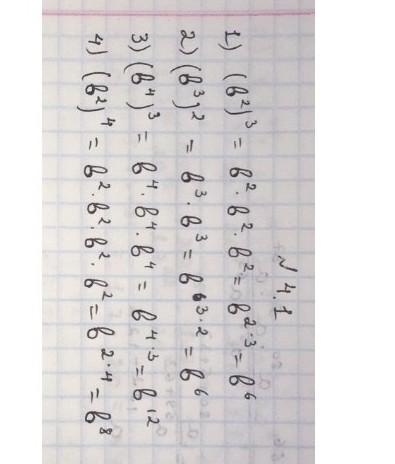 № 4.1
1) (в²)³ = в² · в² · в² = в²·³ = в⁶
2) (в³)² = в³ · в³ = в³·² = в⁶
3) (в⁴)³ = в⁴ · в⁴ · в⁴ = в⁴·³ = в¹²
4) (в²)⁴ = в² · в² · в² · в² = в²·⁴ = в⁸